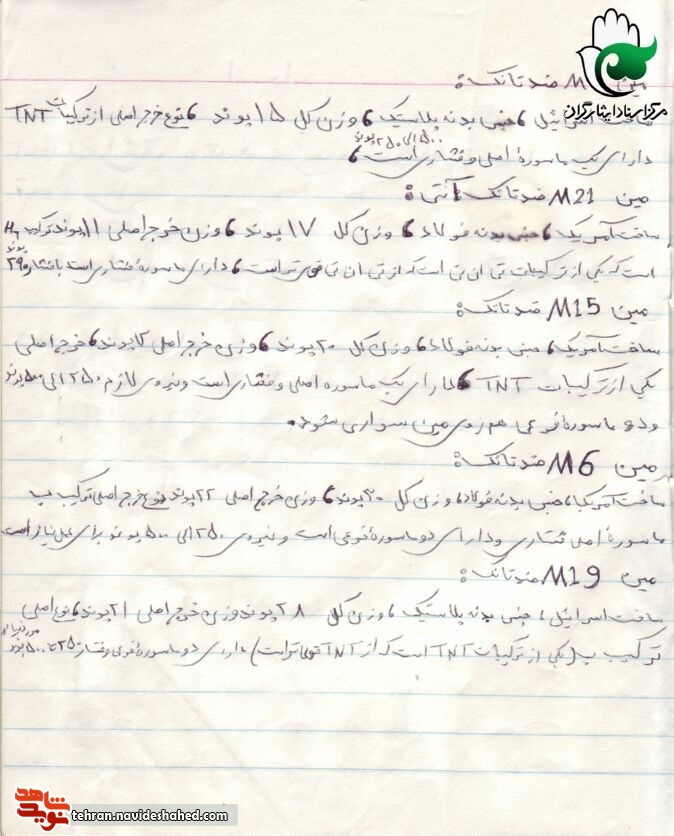 مرکز اسناد ایثارگران
مین M ضد تانک:
ساخت اسرائیل، جنس بدنه پلاستیک، وزن کل ۱۵ پوند، نوع خرج اصلی از ترکیبات TNT
دارای یک ماسورهٔ اصلی و فشاری است،
مین M21 ضد تانک آنتی:
ساخت آمریکا، جنس بدنه فولاد، وزن کل ۱۷ پوند، وزن خرج اصلی ۱۱ پوند ترکیب H6
است که یکی از ترکیبات تی ان تی است که از تی ان تی قوی تر است، دارای ماسورهٔ فشاری است با فشار ۲۹۰ پوند
مین M15 ضد تانک:
ساخت آمریکا، جنس بدنه فولاد، وزن کل ۳۰ پوند، وزن خرج اصلی پوند، خرج اصلی
یکی از ترکیبات TNT، دارای یک ماسوره اصلی و فشاری است و نیروی لازم ۲۵۰ الی ۵۰۰ پوند
و دو ماسورهٔ فرعی هم روی مین سوار می شود.
مین M6 ضد تانک:
ساخت آمریکا، جنس بدنه فولاد، وزن کل ۳۰ پوند، وزن خرج اصلی ۲۲ پوند نوع خرج اصلی ترکیب ب
ماسورهٔ اصلی فشاری و دارای دو ماسورهٔ فرعی است و نیروی ۲۵۰ الی ۵۰۰ پوند برای عمل نیاز است
مین M19 ضد تانک:
ساخت اسرائیل، جنس بدنه پلاستیک، وزن کل ۲۸ پوند وزن خرج اصلی ۲۱ پوند، نوع اصلی
ترکیب ب (یکی از ترکیبات TNT است که از TNT قوی تر است) دارای دو ماسوره فرعی و فشار
شاهد
نوید
tehran.navideshahed.com